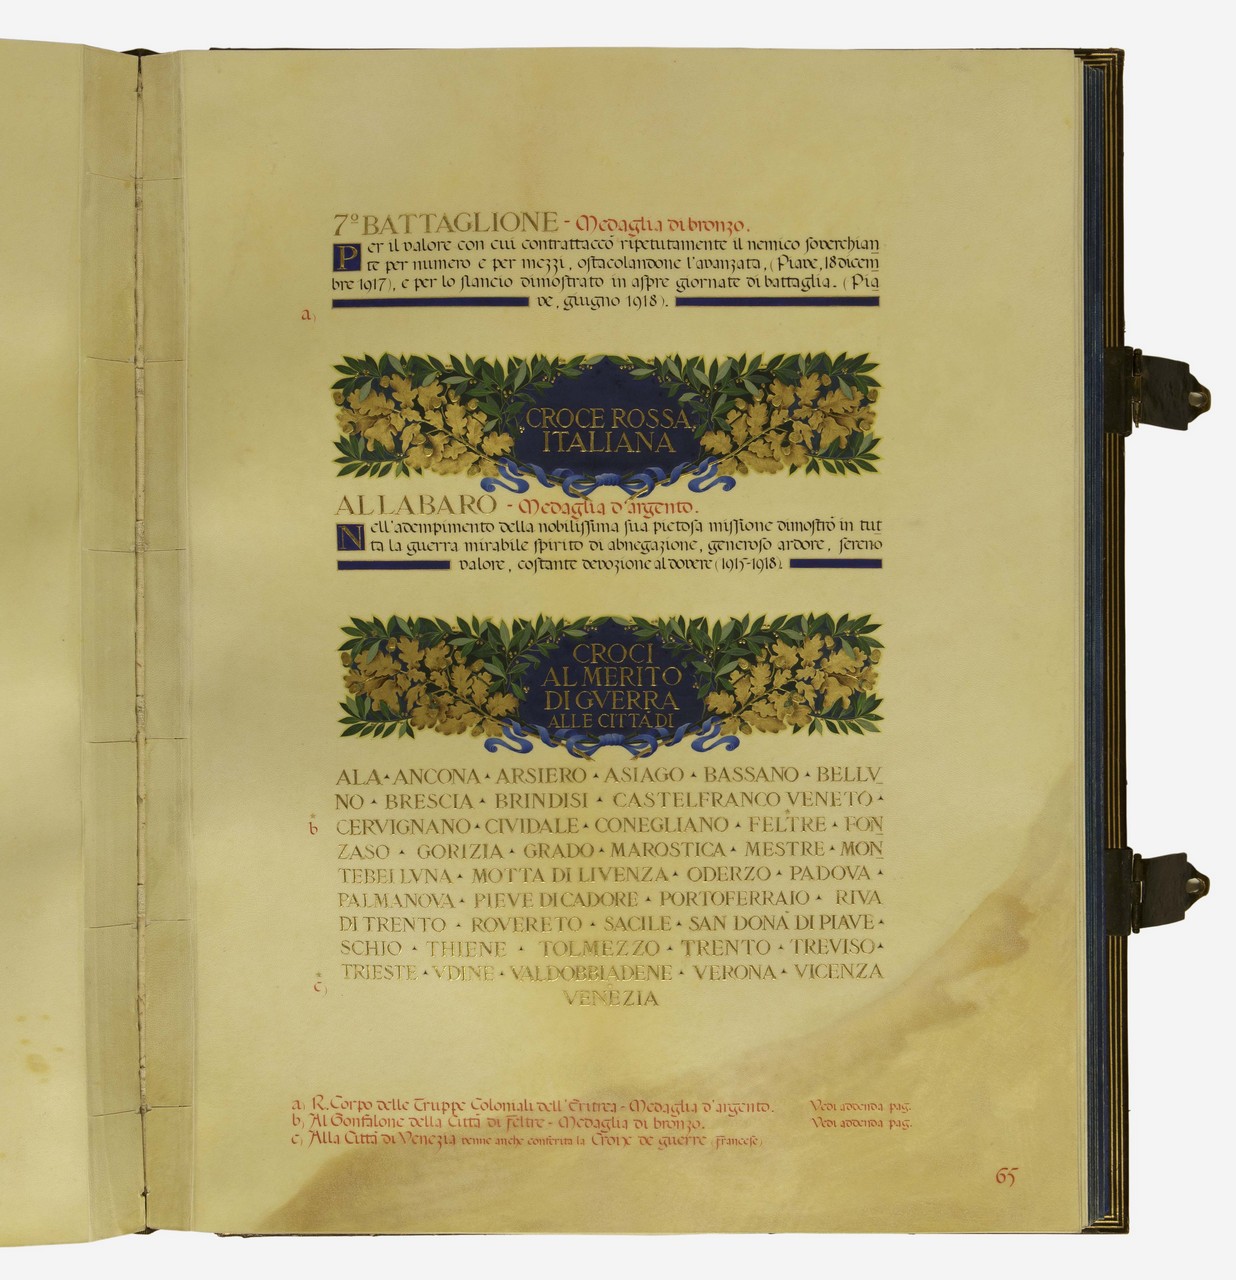 7º BATTAGLIONE - Medaglia di bronzo.
Per il valore con cui contrattaccò ripetutamente il nemico soverchian
te per numero e per mezzi, ostacolandone l'avanzata, (Piave, 18 dicem
bre 1917), e per lo slancio dimostrato in aspre giornate di battaglia. (Pia
ve, giugno 1918).
a)
CROCE ROSSA
ITALIANA
AL LABARO - Medaglia d'argento.
Nell'adempimento della nobilissima sua pietosa missione dimostrò in tut
ta la guerra mirabile spirito di abnegazione, generoso ardore, sereno
valore, costante devozione al dovere (1915-1918).
CROCI
AL MERITO
DI GVERRA
ALLE CITTÀ DI
ALA ▴ ANCONA ▴ ARSIERO ▴ ASIAGO ▴ BASSANO ▴ BELLV
NO ▴ BRESCIA ▴ BRINDISI ▴ CASTELFRANCO VENETO ▴
b CERVIGNANO ▴ CIVIDALE ▴ CONEGLIANO ▴ FELTRE ▴ FON
ZASO ▴ GORIZIA ▴ GRADO ▴ MAROSTICA ▴ MESTRE ▴ MON
TEBELLVNA ▴ MOTTA DI LIVENZA ▴ ODERZO ▴ PADOVA ▴
PALMANOVA ▴ PIEVE DI CADORE ▴ PORTOFERRAIO ▴ RIVA
DI TRENTO ▴ ROVERETO ▴ SACILE ▴ SAN DONÀ DI PIAVE ▴
SCHIO ▴ THIENE ▴ TOLMEZZO ▴ TRENTO ▴ TREVISO ▴
TRIESTE ▴ VDINE ▴ VALDOBBIADENE ▴ VERONA ▴ VICENZA
c) VENEZIA
a) R. Corpo delle Truppe Coloniali dell'Eritrea - Medaglia d'argento. Vedi addenda pag.
b) Al Gonfalone della Città di Feltre - Medaglia di bronzo. Vedi addenda pag.
c) Alla Città di Venezia venne anche conferita la Croix de guerre (francese)
65